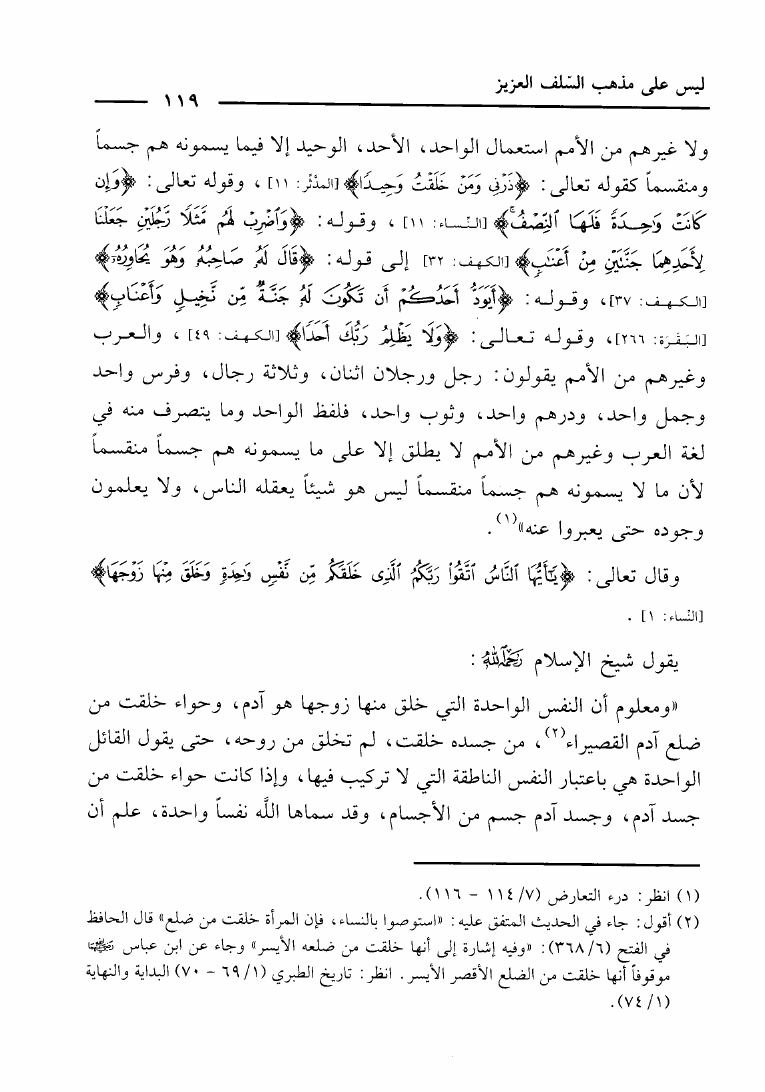 ليس على مذهب السّلف العزيز
١١٩
ولا غيرهم من الأمم استعمال الواحد، الأحد، الوحيد إلا فيما يسمونه هم جسماً
ومنقسماً كقوله تعالى: ﴿ذَرْنِى وَمَنْ خَلَقْتُ وَحِيدًا﴾ [المدَّثِّر: ١١]، وقوله تعالى: ﴿وَإِن
كَانَتْ وَٰحِدَةً فَلَهَا ٱلنِّصْفُ﴾ [النِّساء: ١١]، وقوله: ﴿وَٱضْرِبْ لَهُم مَّثَلًا رَّجُلَيْنِ جَعَلْنَا
لِأَحَدِهِمَا جَنَّتَيْنِ مِنْ أَعْنَٰبٍ﴾ [الكهف: ٣٢] إلى قوله: ﴿قَالَ لَهُۥ صَاحِبُهُۥ وَهُوَ يُحَاوِرُهُۥٓ﴾
[الكهف: ٣٧]، وقوله: ﴿أَيَوَدُّ أَحَدُكُمْ أَن تَكُونَ لَهُۥ جَنَّةٌ مِّن نَّخِيلٍ وَأَعْنَابٍ﴾
[البَقَرَة: ٢٦٦]، وقوله تعالى: ﴿وَلَا يَظْلِمُ رَبُّكَ أَحَدًا﴾ [الكهف: ٤٩]، والعرب
وغيرهم من الأمم يقولون: رجل ورجلان اثنان، وثلاثة رجال، وفرس واحد
وجمل واحد، ودرهم واحد، وثوب واحد، فلفظ الواحد وما يتصرف منه في
لغة العرب وغيرهم من الأمم لا يطلق إلا على ما يسمونه هم جسماً منقسماً
لأن ما لا يسمونه هم جسماً منقسماً ليس هو شيئاً يعقله الناس، ولا يعلمون
وجوده حتى يعبروا عنه»(١).
وقال تعالى: ﴿يَٰٓأَيُّهَا ٱلنَّاسُ ٱتَّقُوا۟ رَبَّكُمُ ٱلَّذِى خَلَقَكُم مِّن نَّفْسٍ وَٰحِدَةٍ وَخَلَقَ مِنْهَا زَوْجَهَا﴾
[النِّساء: ١].
يقول شيخ الإسلام رَحِمَهُ اللهُ:
«ومعلوم أن النفس الواحدة التي خلق منها زوجها هو آدم، وحواء خلقت من
ضلع آدم القصيراء(٢)، من جسده خلقت، لم تخلق من روحه، حتى يقول القائل
الواحدة هي باعتبار النفس الناطقة التي لا تركيب فيها، وإذا كانت حواء خلقت من
جسد آدم، وجسد آدم جسم من الأجسام، وقد سماها اللَّه نفساً واحدة، علم أن
(١) انظر: درء التعارض (٧/ ١١٤ - ١١٦).
(٢) أقول: جاء في الحديث المتفق عليه: «استوصوا بالنساء، فإن المرأة خلقت من ضلع» قال الحافظ
في الفتح (٦/ ٣٦٨): «وفيه إشارة إلى أنها خلقت من ضلعه الأيسر» وجاء عن ابن عباس
موقوفاً أنها خلقت من الضلع الأقصر الأيسر. انظر: تاريخ الطبري (١/ ٦٩ - ٧٠) البداية والنهاية
(١/ ٧٤).